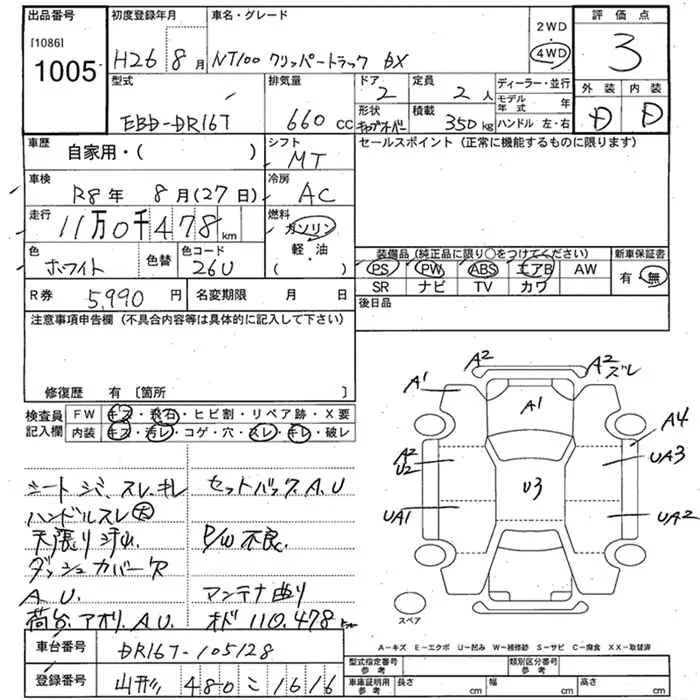 出品番号 初度登録年月 車名・グレード 2WD 評価点
[1086] 1005 H26 8月 NT100 クリッパートラック DX 4WD 3
型式 排気量 ドア 定員 ディーラー・並行 外装 内装
EBD-DR16T 660 cc 2 2人 モデル年式 年 D D
形状 キャブオーバー 積載 350kg ハンドル 左・右
車歴 自家用・( ) シフト MT セールスポイント (正常に機能するものに限ります)
車検 R8年 8月(27日) 冷房 AC
走行 11万0千478km 燃料 ガソリン
軽・油
( )
色 ホワイト 色替 色コード 26U
装備品 (純正品に限り○をつけてください) 新車保証書
PS PW ABS エアB AW 有・無
SR ナビ TV カワ
R券 5,990円 名変期限 月 日 後日品
注意事項申告欄 (不具合内容等は具体的に記入して下さい)
修復歴 有 〔箇所 〕
検査員記入欄 FW キズ・飛石・ヒビ割・リペア跡・X要
内装 キズ・汚レ・コゲ・穴・スレ・キレ・破レ
A2 A2 ズレ
A1 A1
A4
A2 U2 U3 UA3
UA1 UA2
スペア
シートシミ、スレ、キレ セットバック A.U
ハンドルスレ大
天張り汚れ P/W不良
ダッシュカバー
A.U. アンテナ曲り
荷台、アオリ、A.U オド 110,478km
A-キズ E-エクボ U-凹み W-補修跡 S-サビ C-腐食 XX-取替済
車台番号 DR16T-105128
登録番号 山形 480 こ 1616
型式指定番号 参考 類別区分番号 参考
車庫証明用 参考 長さ cm 幅 cm 高さ cm